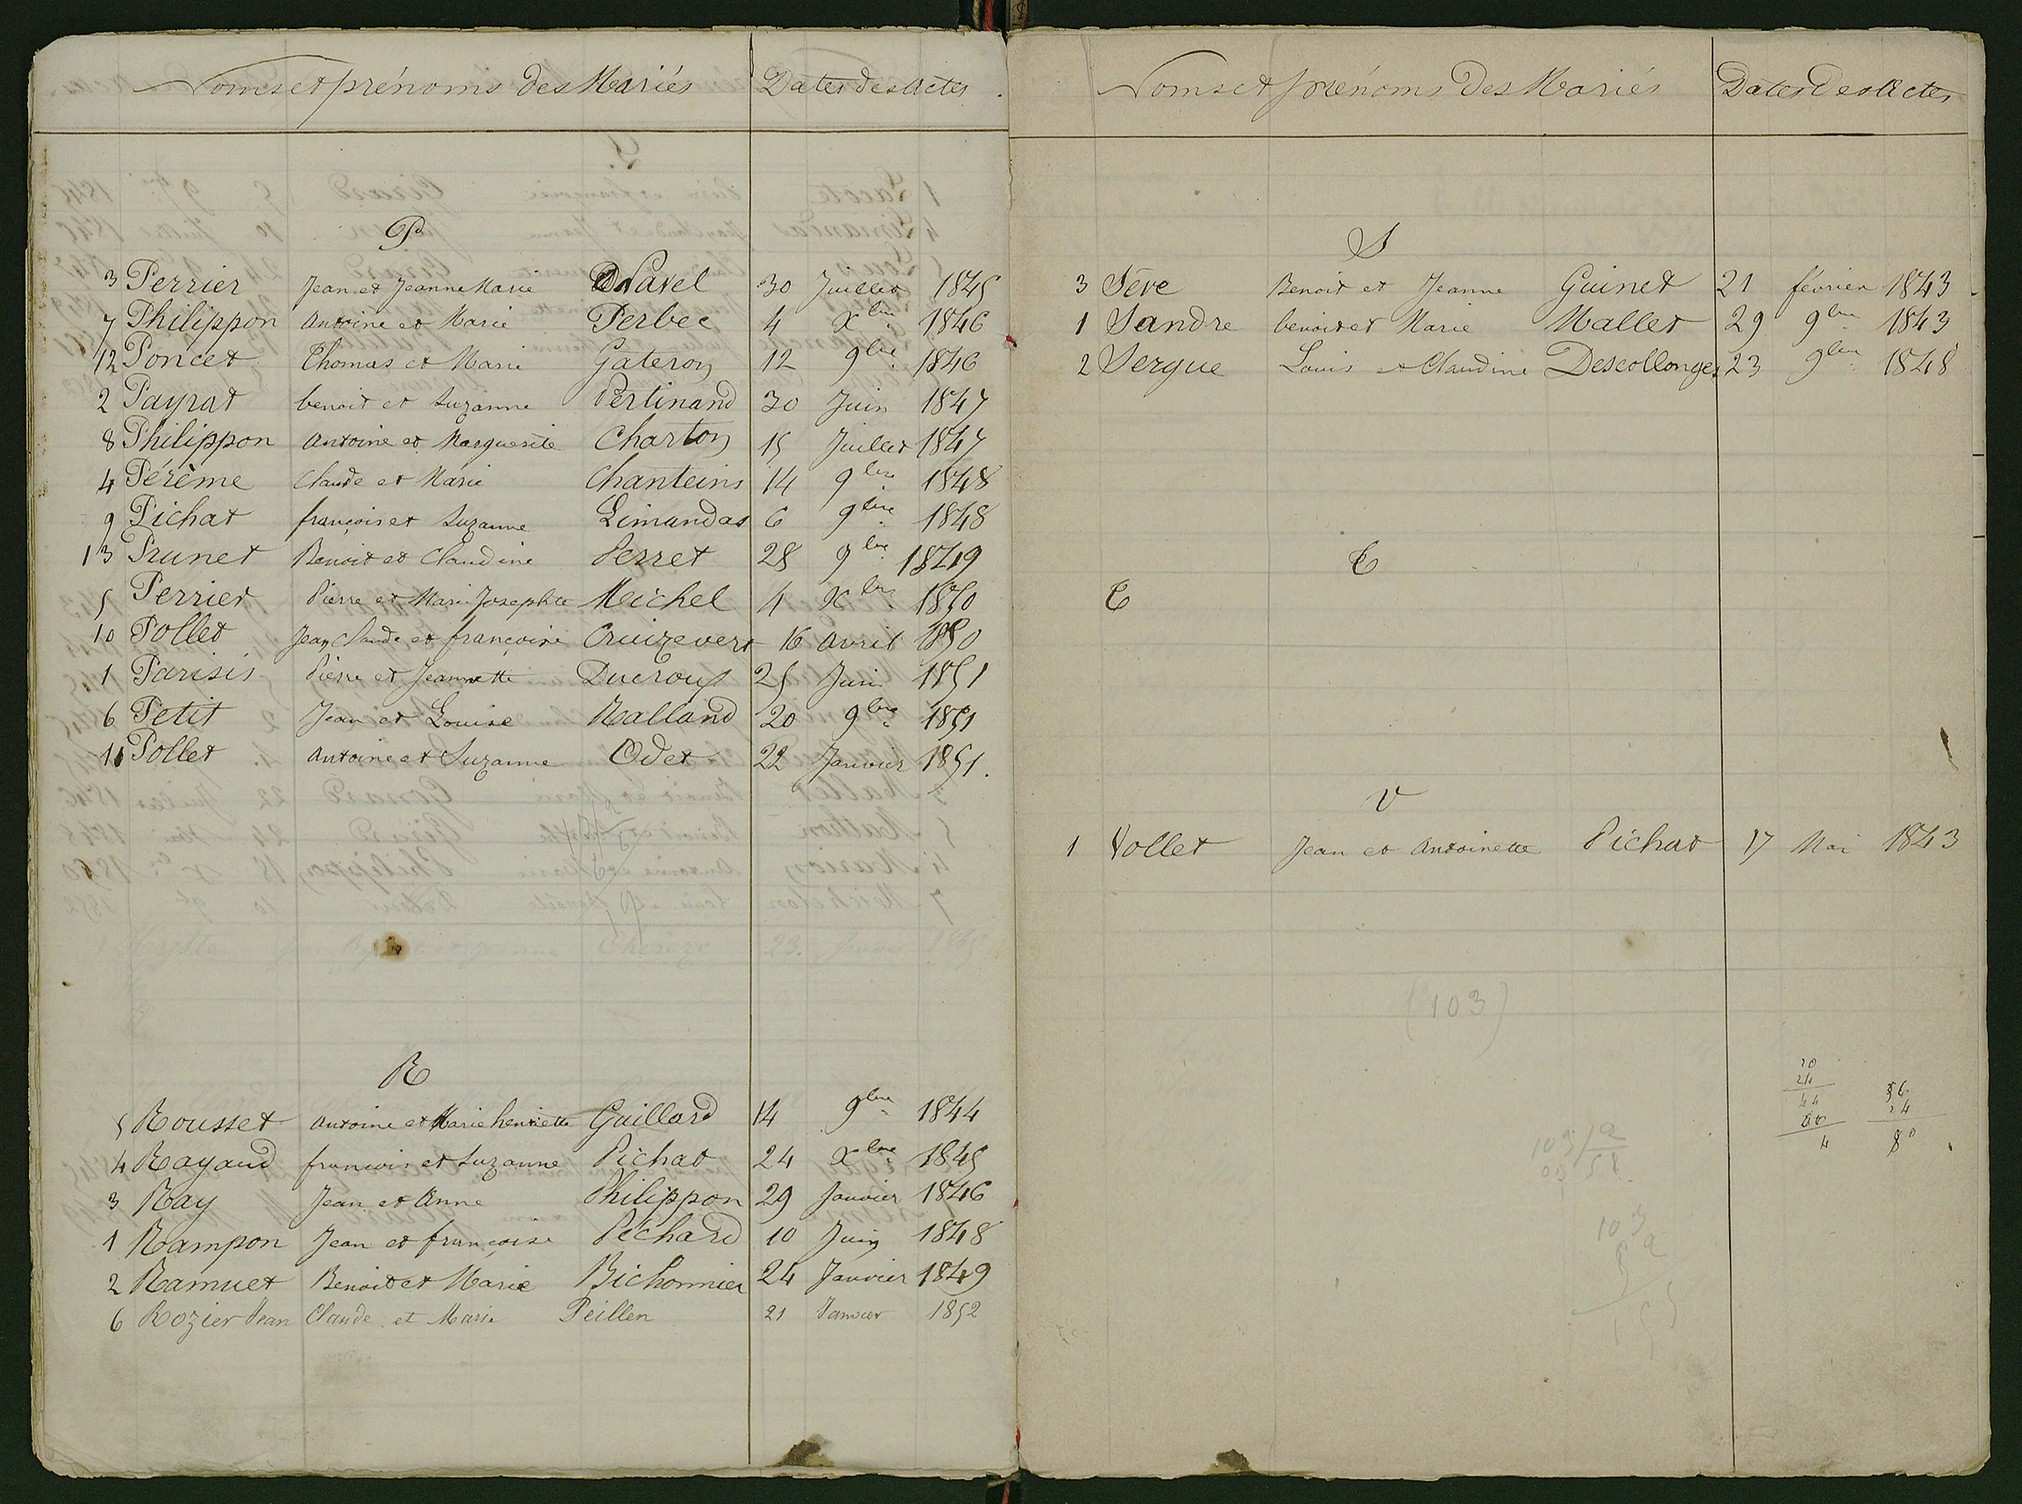 Noms et prénoms des Mariés Dates des Actes
P
3 Perrier Jean et Jeanne Marie Pavel 30 Juillet 1845
7 Philippon Antoine et Marie Perbec 4 Xbre 1846
12 Poncet Thomas et Marie Gateron 12 9bre 1846
2 Payrat benoit et Suzanne Pertinand 30 Juin 1847
8 Philippon Antoine et Marguerite Charton 15 Juillet 1847
4 Pérème Claude et Marie Chanteins 14 9bre 1848
9 Pichat françois et Suzanne Limandas 6 9bre 1848
13 Prunet Benoit et Claudine Perret 28 9bre 1849
5 Perrier Pierre et Marie Josephte Michel 4 Xbre 1850
10 Pollet Jean Claude et françoise Cruizevert 16 avril 1850
1 Parisis Pierre et Jeannette Ducroux 25 Juin 1851
6 Petit Jean et Louise Ralland 20 9bre 1851
11 Pollet Antoine et Suzanne Odet 22 Janvier 1851.
R
5 Rousset Antoine et Marie henriette Guillard 14 9bre 1844
4 Rayaud francois et Suzanne Pichat 24 Xbre 1845
3 Ray Jean et Anne Philippon 29 Janvier 1846
1 Rampon Jean et françoise Péchard 10 Juin 1848
2 Ramuet Benoit et Marie Bichonnier 24 Janvier 1849
6 Rozier Jean Claude et Marie Peillen 21 Janvier 1852
Noms et prénoms des Mariés Dates des Actes
S
3 Sève Benoit et Jeanne Guinet 21 février 1843
1 Sandre benoit et Marie Mallet 29 9bre 1843
2 Sergue Louis et Claudine Descollonges 23 9bre 1848
T
T
V
1 Vollet Jean et Antoinette Pichat 17 Mai 1843
(103)
20
24 56
44 24
4 80
103